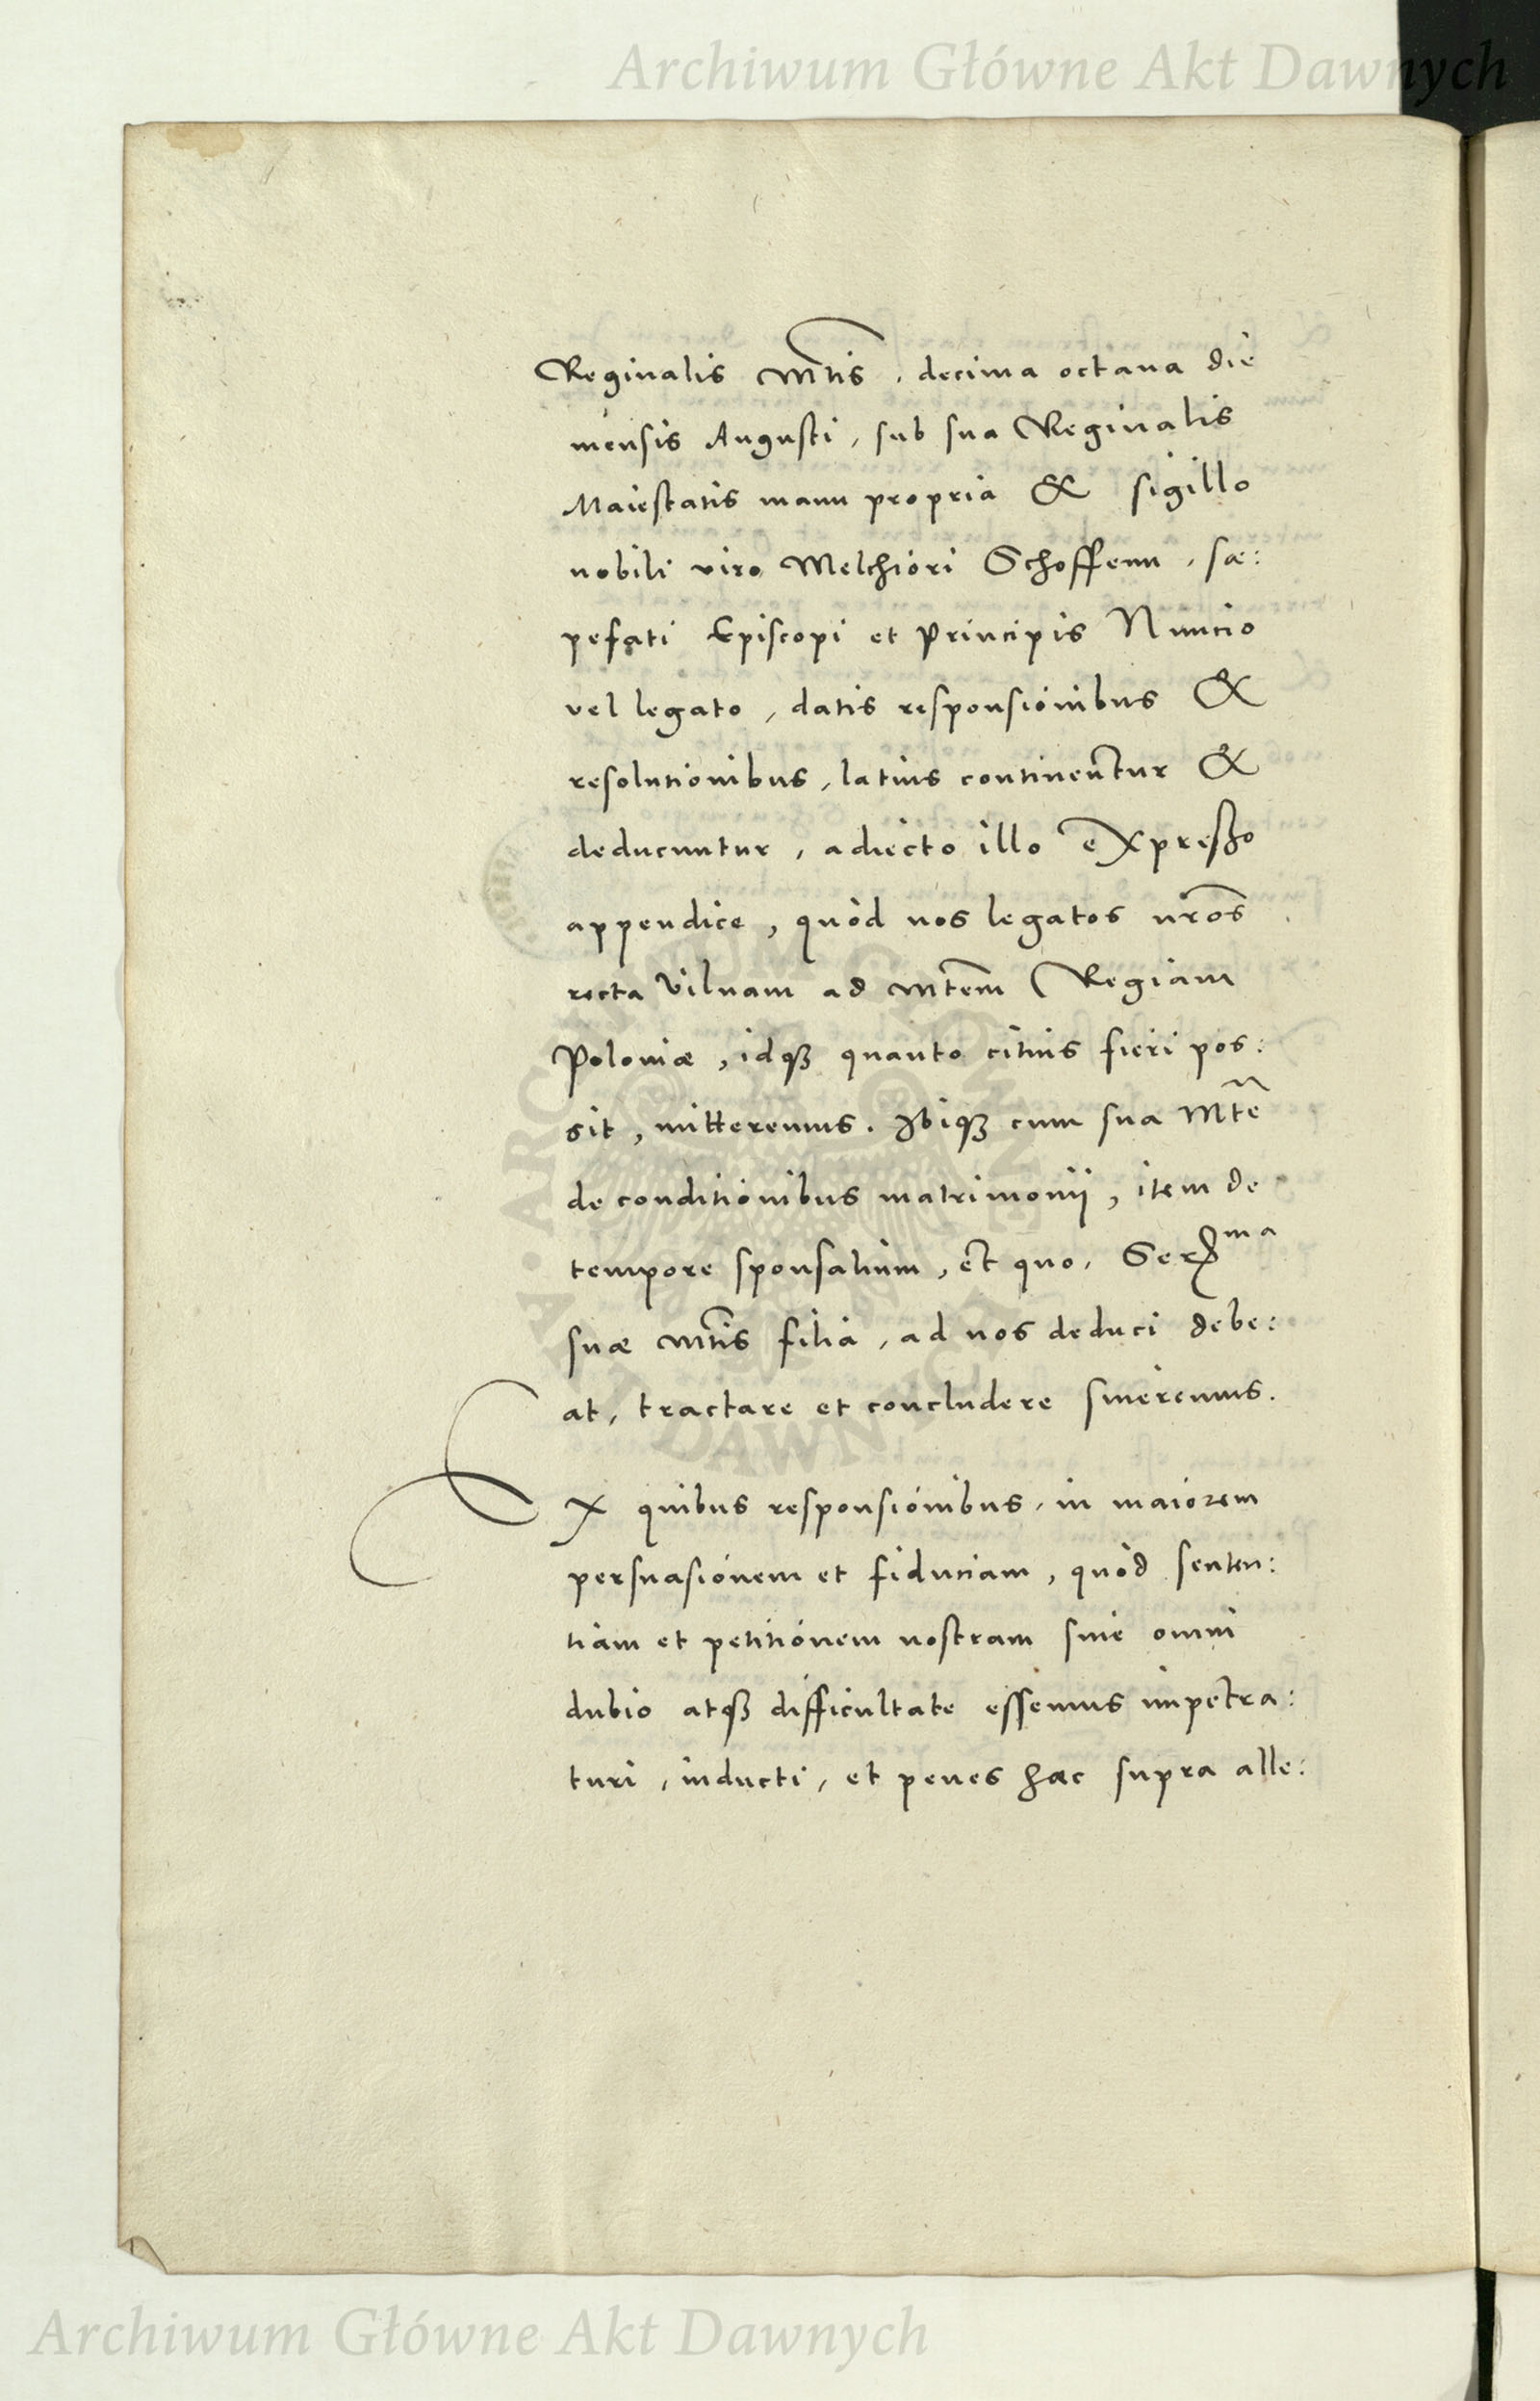 Archiwum Główne Akt Dawnych
Reginalis Mtis, decima octaua die
mensis Augusti, sub sua Reginalis
Maiestatis manu propria & sigillo
nobili viro Melchiori Schoffenn, sæ:
pefati Episcopi et Principis Nuncio
vel legato, datis responsionibus &
resolutionibus, latius continentur &
deducuntur, adiecto illo expresso
appendice, quòd nos legatos nr̃os
recta Vilnam ad Mtem Regiam
Poloniæ, idq; quanto citius fieri pos:
sit, mitteremus. Ibiq; cum sua Mte
de conditionibus matrimonij, item de
tempore sponsalium, et quo, Ser^ma
suæ Mtis filia, ad nos deduci debe:
at, tractare et concludere sineremus.
Ex quibus responsionibus, in maiorem
persuasionem et fiduciam, quòd senten:
tiam et petitionem nostram sine omni
dubio atq; difficultate essemus impetra:
turi, inducti, et penes hæc supra alle:
Archiwum Główne Akt Dawnych